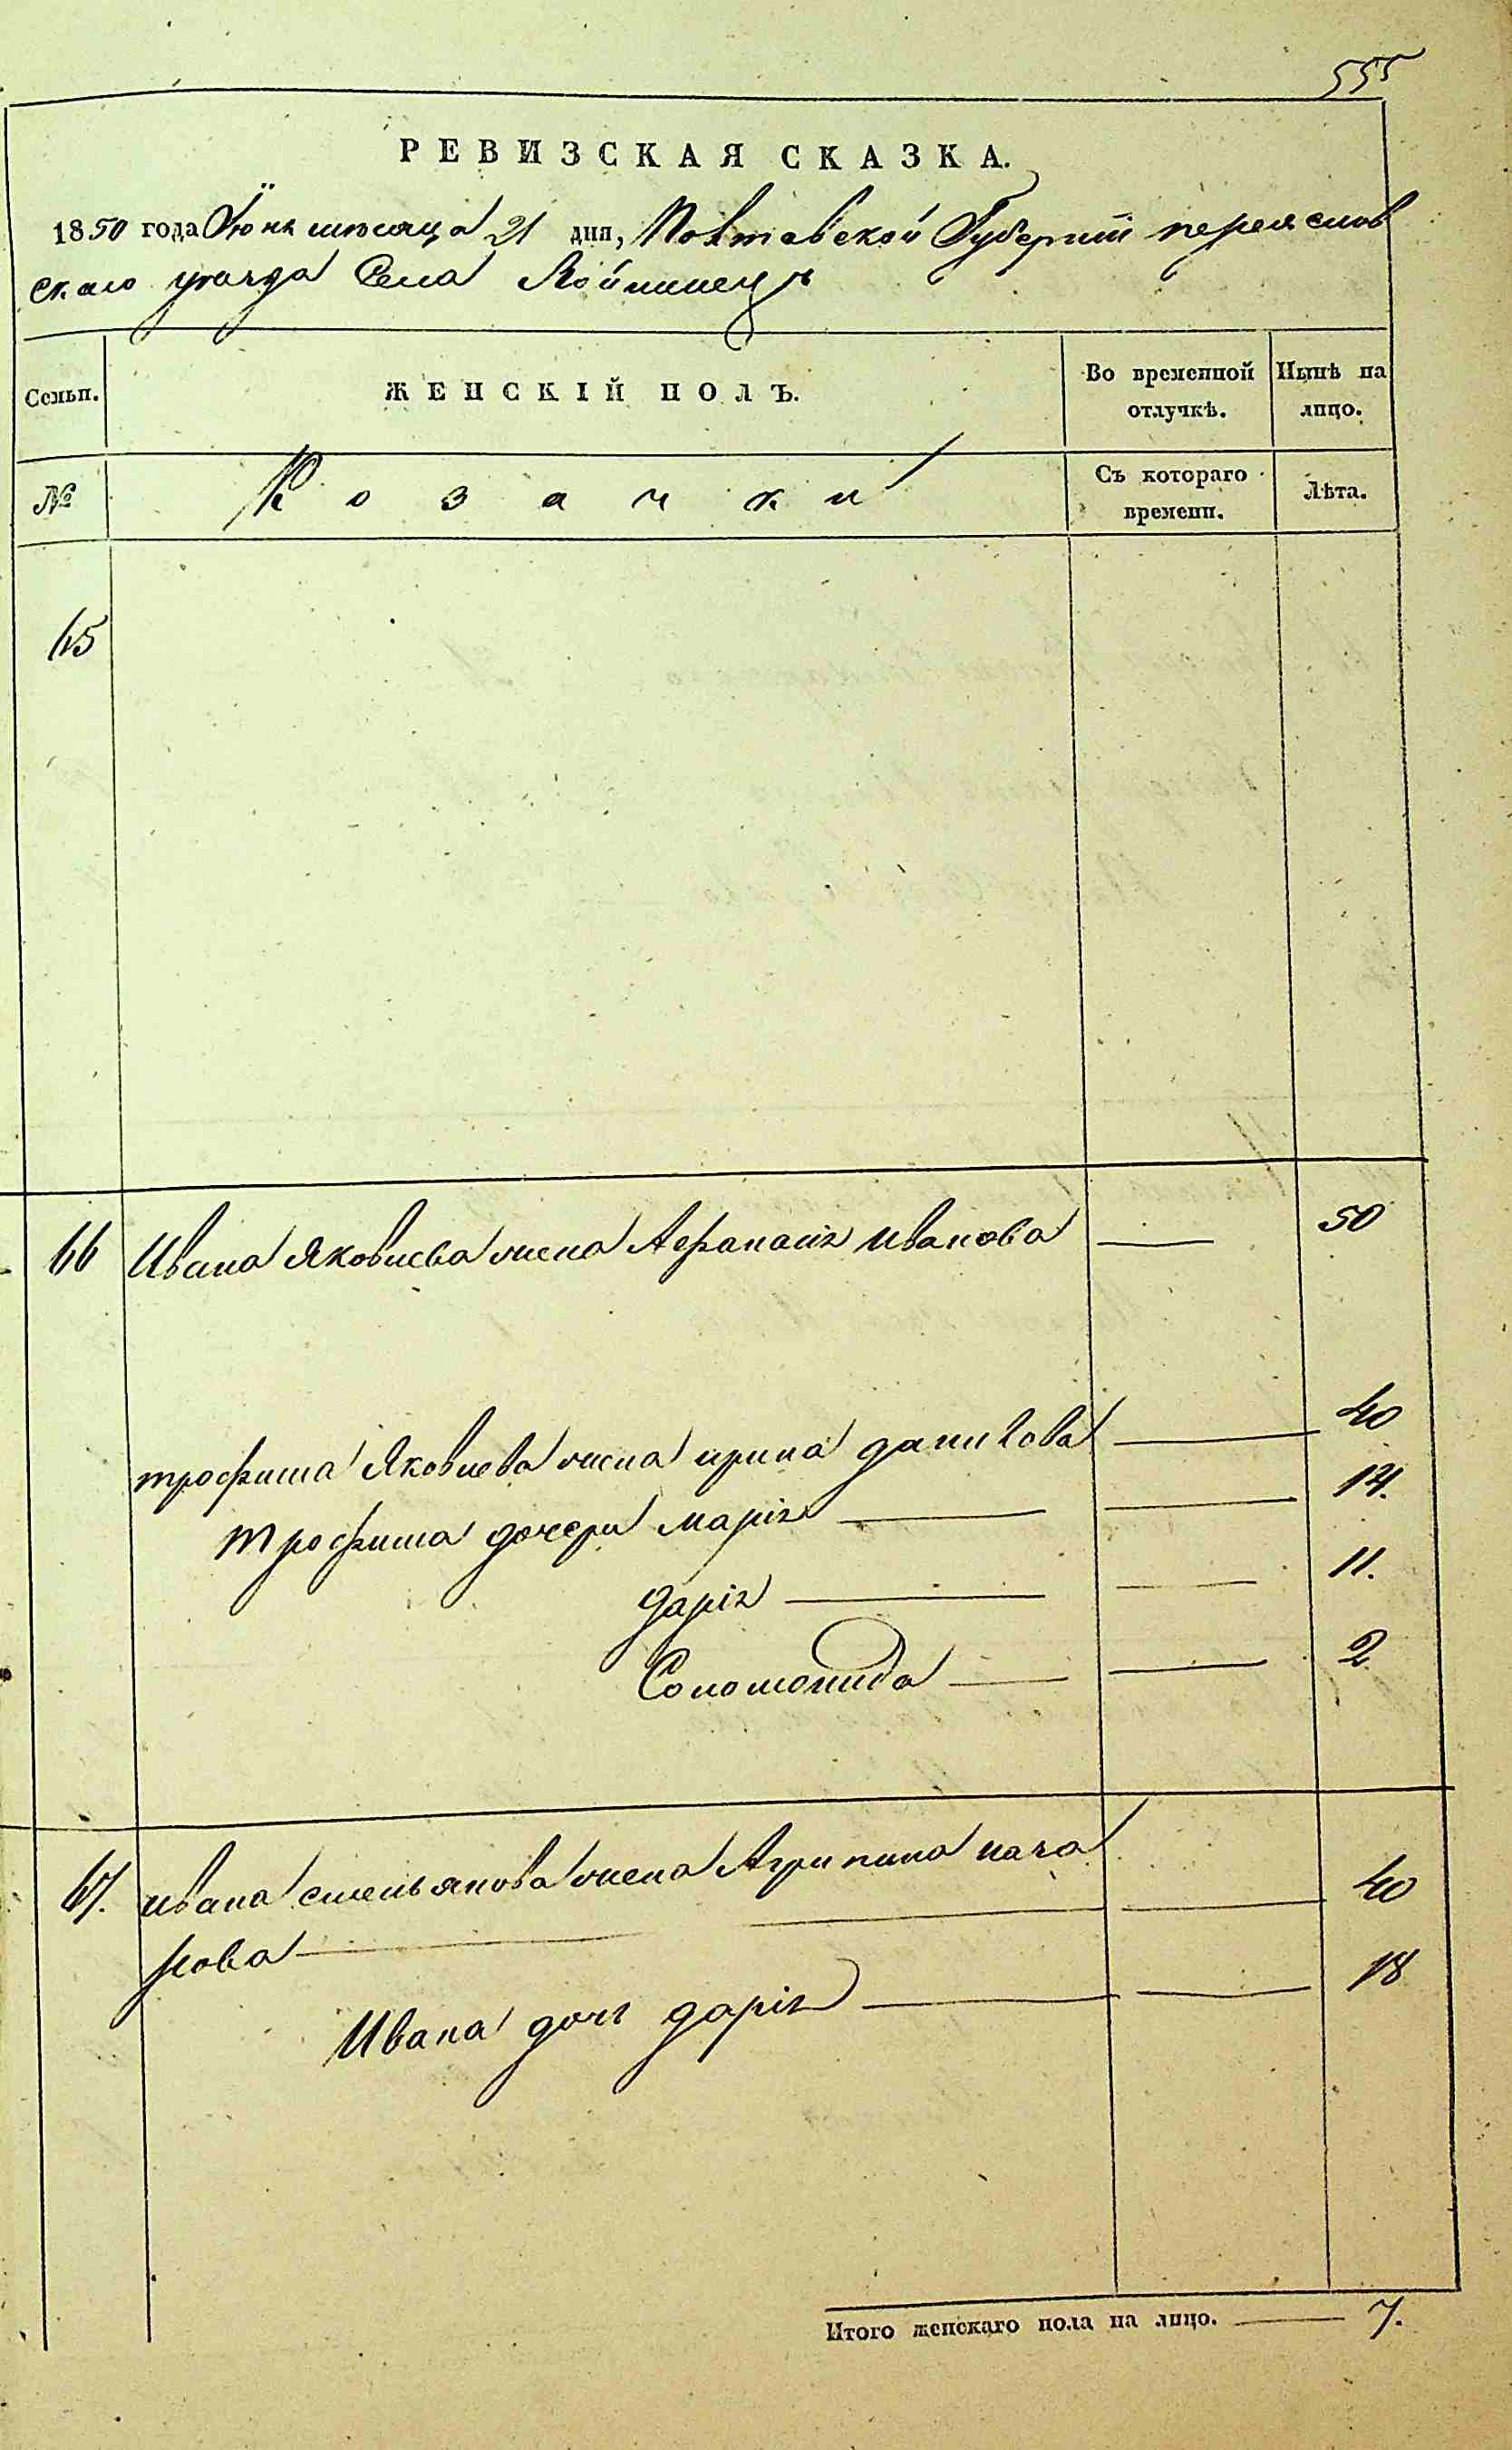 555
РЕВИЗСКАЯ СКАЗКА.
1850 года Июня месяца 21 дня, Полтавской Губернии переяслов
скаго уезда Села Войтовецъ
Семьи. ЖЕНСКІЙ ПОЛЪ. Во временной отлучкѣ. Нынѣ на лицо.
№ Козачки Съ котораго времени. Лѣта.
65
66 Ивана Яковлева жена Афанасія Иванова 50
трофима Яковлева жена ирина данилова 40
трофима дочери марія 14.
дарія 11.
Соломонида 2
67. ивана емельянова жена Агрипина наза
рова 40
Ивана дочь дарія 18
Итого женскаго пола на лицо. 7.